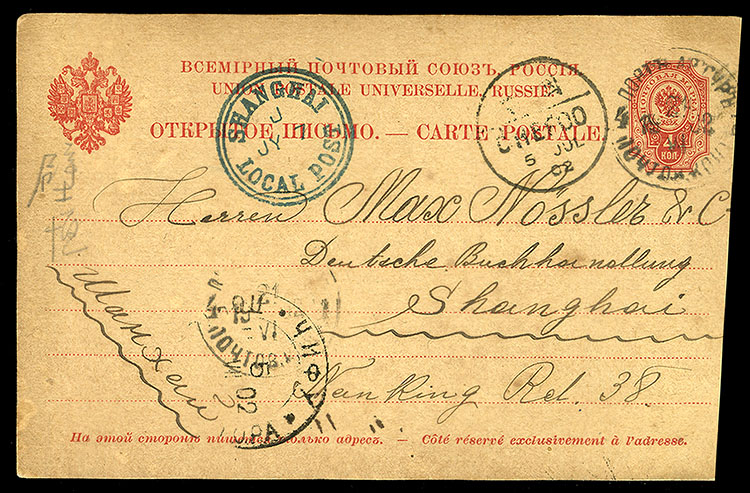 ВСЕМІРНЫЙ ПОЧТОВЫЙ СОЮЗЪ, РОССІЯ
UNION POSTALE UNIVERSELLE, RUSSIE
ОТКРЫТОЕ ПИСЬМО. — CARTE POSTALE.
ПОЧТОВАЯ МАРКА
4
КОП
SHANGHAI
JY 7
LOCAL POST
CHEFOO
5 JUL
02
ПОРТЪ АРТУРЪ
Herren Max Nössler & C
Deutsche Buchhandlung
Shanghai
Nanking Rd. 38.
Шанхай
ЧИФУ
02
На этой сторонѣ пишется только адресъ. — Côté réservé exclusivement à l'adresse.